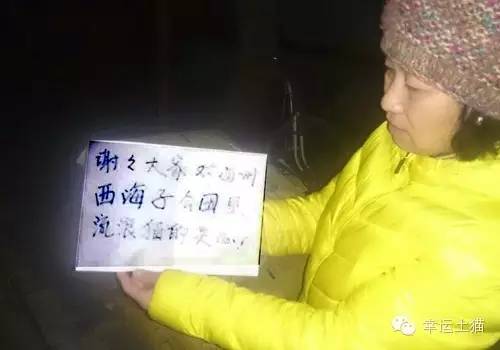 谢々大家对通州
西海子公园
流浪猫的关心!
幸运土猫